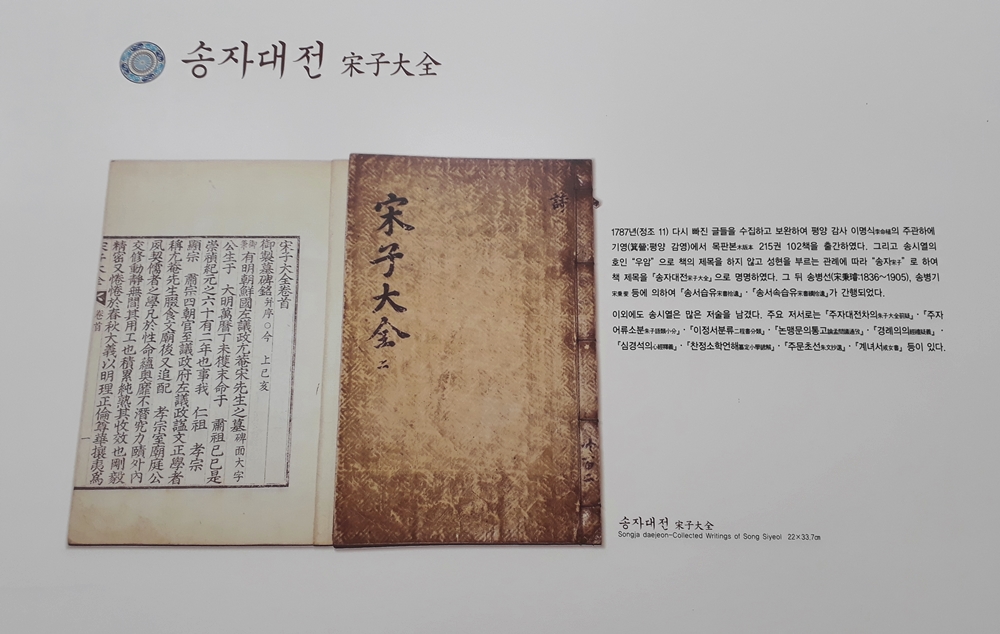 송자대전 宋子大全
宋子大全卷首
御製墓碑銘 幷序 ○今 上己亥
有明朝鮮國左議政尤菴宋先生之墓 碑面大字
公生于 大明萬曆丁未後 命于 肅祖己巳是
崇禎紀元之六十有二年也事我 仁祖 孝宗
顯宗 肅宗四朝官至議政府左議政諡文正學者
稱尤菴先生 食文廟後又追配 孝宗室廟庭公
夙契儒者之學凡於性命蘊奧靡不潛究力賾外內
交修動靜無間其用工也積累純熟其收效也剛毅
精密又惓惓於春秋大義以明理正倫尊華攘夷爲
宋子大全 卷首 一
宋子大全 二
詩
1787년(정조 11) 다시 빠진 글들을 수집하고 보완하여 평양 감사 이명식의 주관하에
기영(箕營:평양 감영)에서 목판본木版本 215권 102책을 출간하였다. 그리고 송시열의
호인 "우암" 으로 책의 제목을 하지 않고 성현을 부르는 관례에 따라 "송자宋子" 로 하여
책 제목을 「송자대전宋子大全」으로 명명하였다. 그 뒤 송병선(宋秉璿:1836~1905), 송병기
등에 의하여 「송서습유宋書拾遺」·「송서속습유宋書續拾遺」가 간행되었다.
이외에도 송시열은 많은 저술을 남겼다. 주요 저서로는 「주자대전차의」·「주자
어류소분朱子語類小分」·「이정서분류二程書分類」·「논맹문의통고」·「경례의의」·
「심경석의心經釋義」·「찬정소학언해」·「주문초선朱文抄選」·「계녀서戒女書」 등이 있다.
송자대전 宋子大全
Songja daejeon-Collected Writings of Song Siyeol 22×33.7㎝